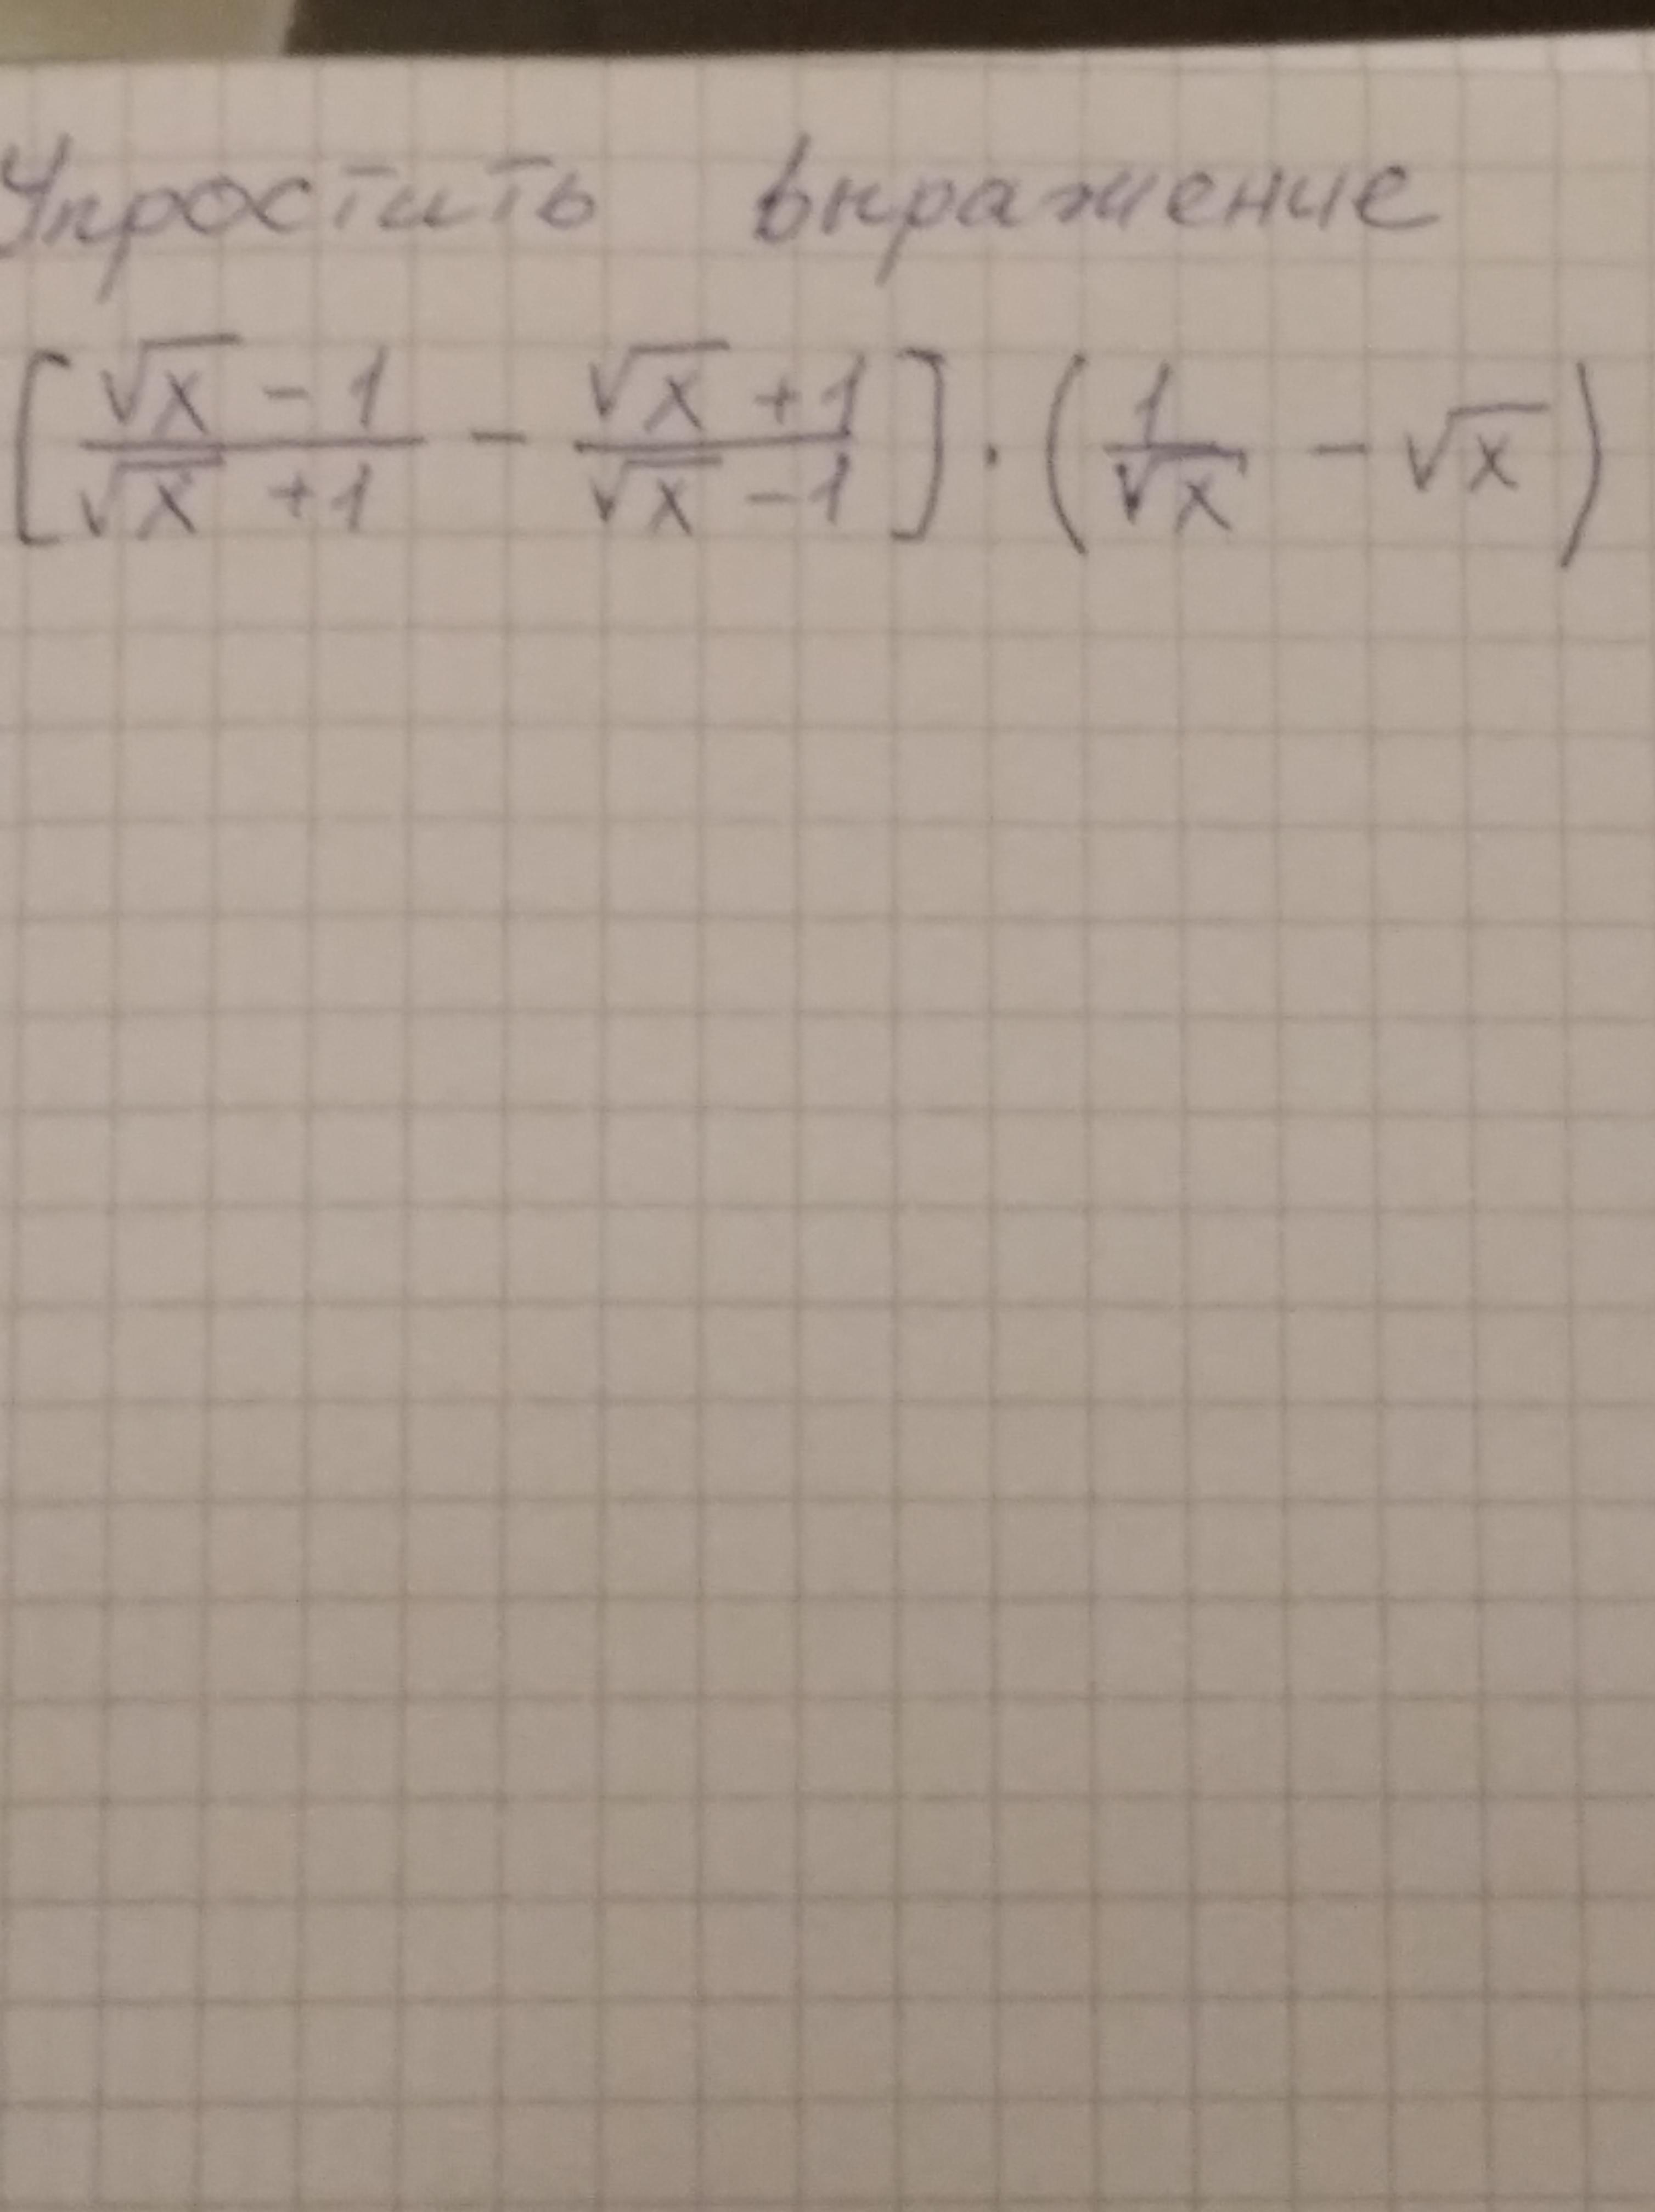 Упростить выражение
[(√x - 1)/(√x + 1) - (√x + 1)/(√x - 1)] · (1/√x - √x)